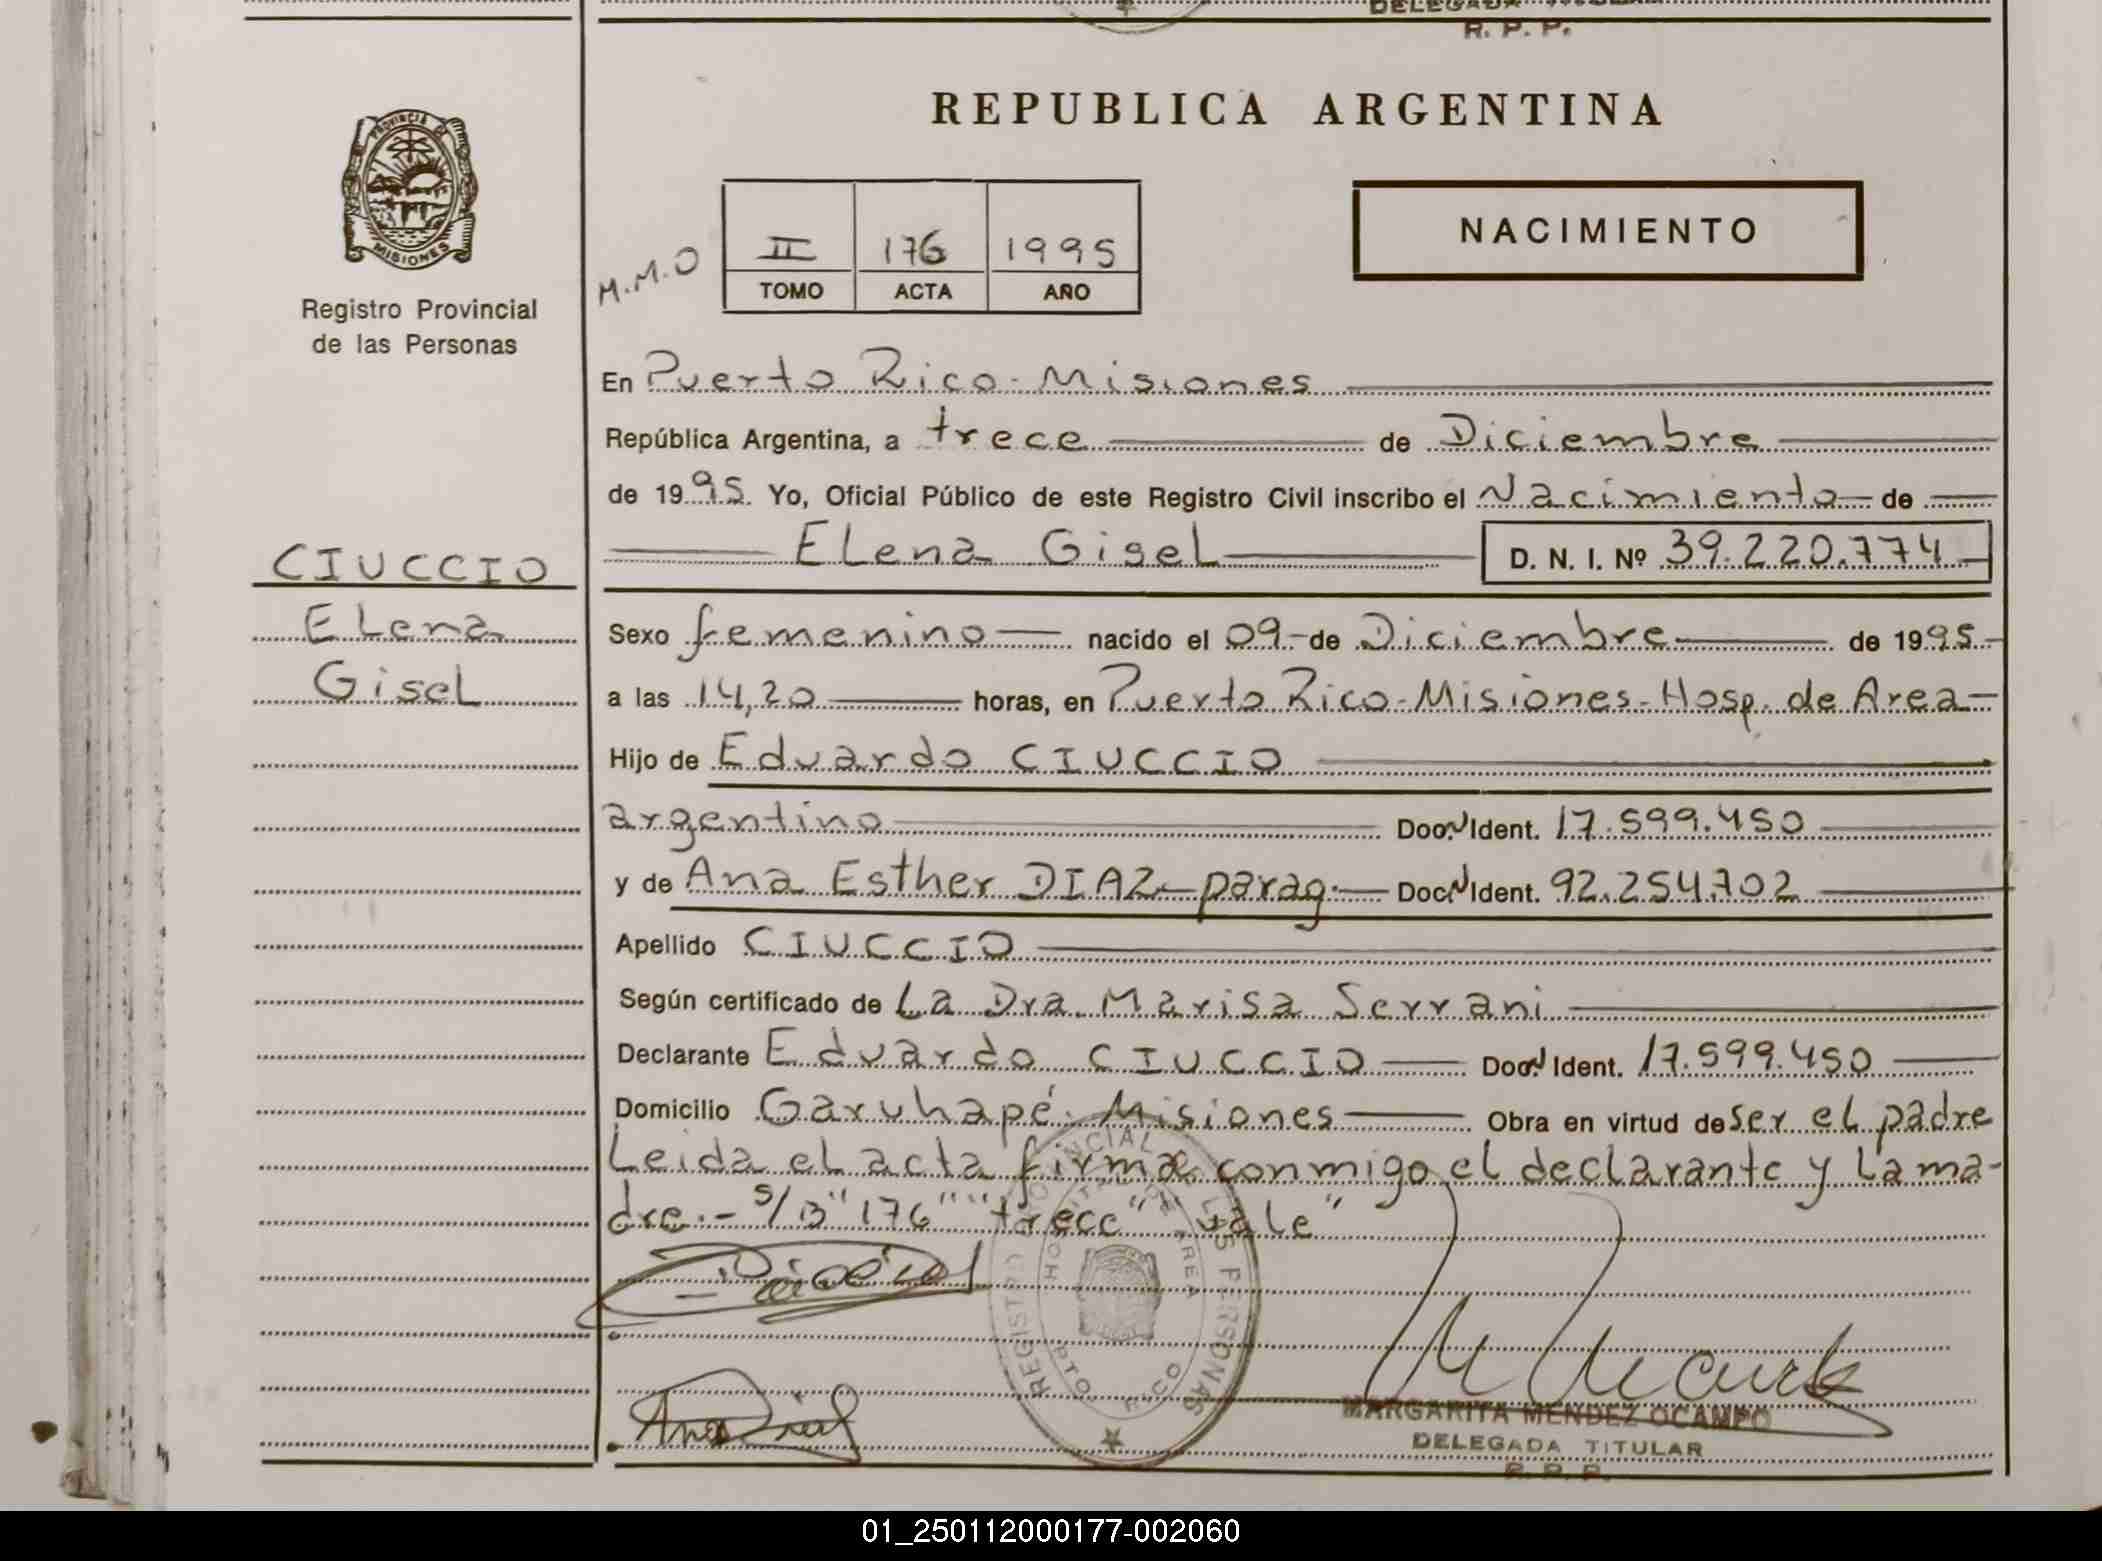 DELEGADA TITULAR
R. P. P.
REPUBLICA ARGENTINA
PROVINCIA DE MISIONES
Registro Provincial
de las Personas
M.M.O
II 176 1995
TOMO ACTA AÑO
NACIMIENTO
En Puerto Rico - Misiones
República Argentina, a trece de Diciembre
de 1995. Yo, Oficial Público de este Registro Civil inscribo el Nacimiento de
Elena Gisel D. N. I. Nº 39.220.774
CIUCCIO
Elena
Gisel
Sexo femenino nacido el 09 de Diciembre de 1995
a las 14,20 horas, en Puerto Rico - Misiones - Hosp. de Area
Hijo de Eduardo CIUCCIO
argentino Doc. N Ident. 17.599.450
y de Ana Esther DIAZ - parag. Doc. N Ident. 92.254.702
Apellido CIUCCIO
Según certificado de La Dra. Marisa Serrani
Declarante Eduardo CIUCCIO Doc. N Ident. 17.599.450
Domicilio Garuhapé. Misiones Obra en virtud de ser el padre
Leida el acta firma conmigo el declarante y la ma-
dre.- s/B "176" "trece" "vale"
REGISTRO PROVINCIAL DE LAS PERSONAS
HOSPITAL DE AREA
PTO RICO
Ana Diaz
MARGARITA MENDEZ OCAMPO
DELEGADA TITULAR
R. P. P.
01_250112000177-002060